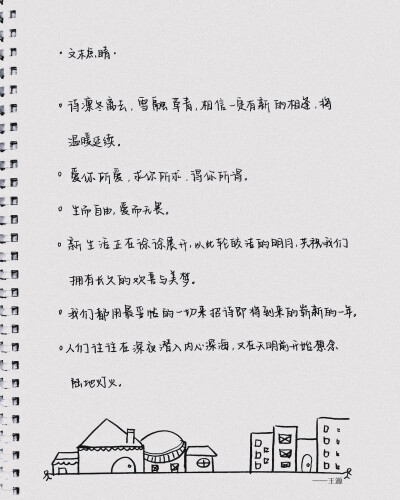 ·文林㤅晴·
待凛冬离去，雪融草青，相信一定有新的相逢，将
温暖延续。
爱你所爱，求你所求，得你所得。
生而自由，爱而无畏。
新生活正在徐徐展开，以此轮皎洁的明月，先祝我们
拥有长久的欢喜与美梦。
我们都用最妥帖的一切来招待即将到来的崭新的一年。
人们往往在深夜潜入内心深海，又在天明前开始想念
陆地灯火。
——王源